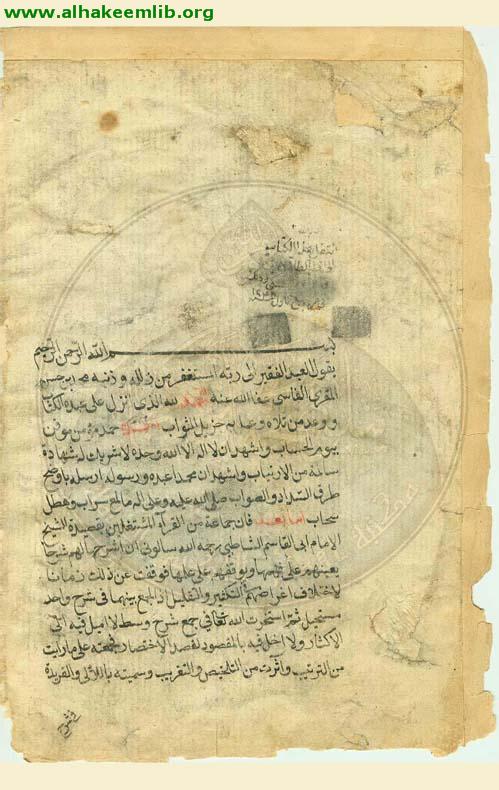 www.alhakeemlib.org
انتقل هذا الكتاب
بســـــــــم الله الرحمن الرحيم
يقول العبد الفقير الى ربه المستغفر من زلله وذنبه محمد بن حسن
المقرى الفاسي عفا الله عنه الحمد لله الذى انزل على عبده الكتاب
ووعد من تلاه وعمل به جزيل الثواب احمده حمد مؤمن موقن
بيوم الحساب واشهد ان لا اله الا الله وحده لا شريك له شهادة
سالمة من الارتياب واشهد ان محمدا عبده ورسوله ارسله باوضح
طرق السداد والصواب صلى الله عليه وعلى اله ما لمع سراب وهطل
سحاب اما بعد فان جماعة من القرأة المشتغلين بقصيدة الشيخ
الامام ابى القاسم الشاطبي رحمه الله سالونى ان اشرح لهم شرحا
يعينهم على فهمها ويوقفهم على علمها فوقفت عن ذلك زمانا
لاختلاف اغراضهم فى التكثير والتقليل اذ الجمع بينهما فى شرح واحد
مستحيل ثم استخرت الله تعالى فى جمع شرح وسط لا اميل فيه الى
الاكثار ولا اخل فيه بالمقصود لقصد الاختصار فجمعته على ما رايت
من الترتيب واثرت من التلخيص والتقريب وسميته باللالى والفريدة
فى شرح